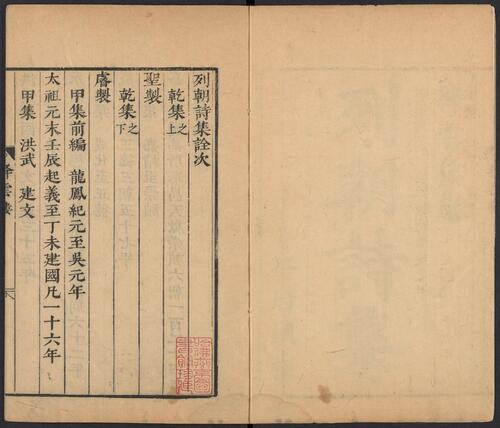 列朝詩集詮次
乾集之上
聖製
乾集之下
睿製
甲集前編 龍鳳紀元至吳元年
太祖元末壬辰起義至丁未建國凡一十六年
甲集 洪武 建文